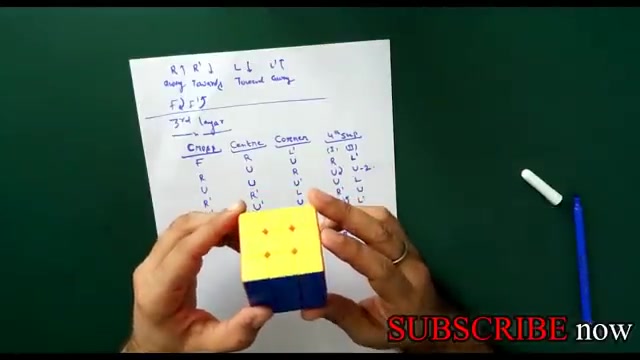 R↑ R'↓ L↓ L'↑
Away Towards Toward Away
3rd layer
Cross Centre Corner 4th step
F R L' (I) (II)
R U U R L'
U U R U2 U-2
R' U' U' U L
L R' U
U L'
SUBSCRIBE now